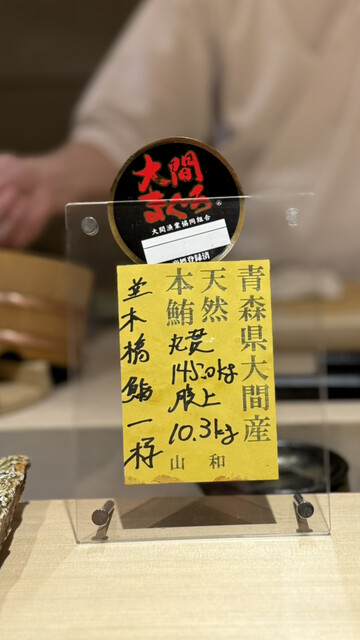 大間
まぐろ
®
大間漁業協同組合
商標登録済
青森県大間産
天然
本鮪
丸貫
145.0kg
腹上
10.3kg
山和
並木橋鮨一様